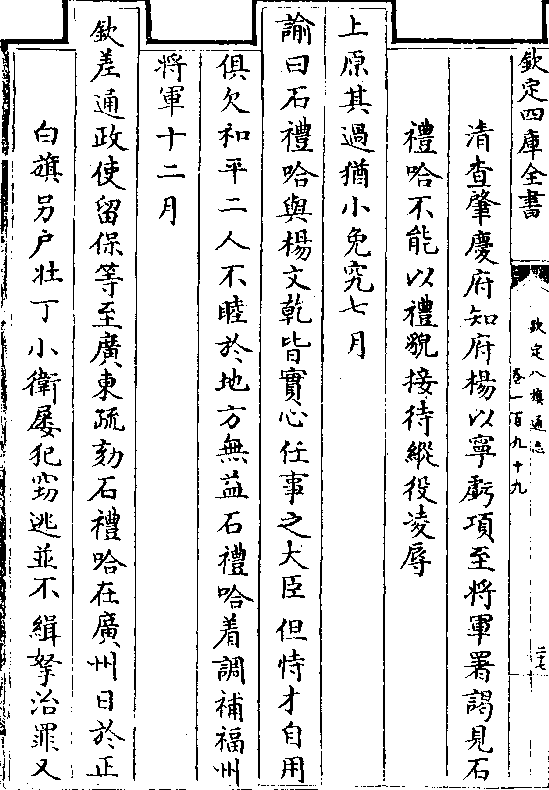 欽定四庫全書
欽定八旗通志
卷一百九十九
二七
清查肇慶府知府楊以寧虧項至將軍署謁見石
禮哈不能以禮貌接待縱役凌辱
上原其過猶小免究七月
諭曰石禮哈與楊文乾皆實心任事之大臣但恃才自用
俱欠和平二人不睦於地方無益石禮哈着調補福州
將軍十二月
欽差通政使留保等至廣東疏劾石禮哈在廣州日於正
白旗另户壯丁小衛屢犯竊逃並不緝拏治罪又